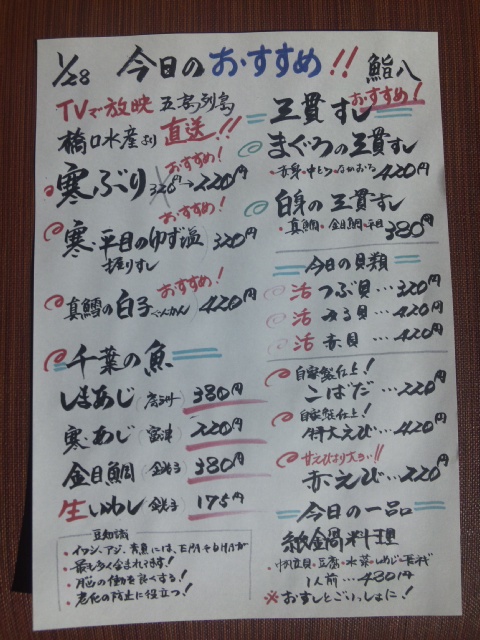 1/28 今日のおすすめ!! 鮨八
TVで放映 五島列島
橋口水産より 直送!!
おすすめ!
寒ぶり 320円→220円
おすすめ!
寒平目のゆず塩 320円
握りすし
おすすめ!
真鱈の白子ぐんかん 420円
千葉の魚
しまあじ(房州) 380円
寒あじ(富津) 220円
金目鯛(銚子) 380円
生いわし(銚子) 175円
豆知識
・イワシ、アジ、青魚には、EPAやDHAが
・最も多く含まれてます!
・脳の働きを良くする!
・老化の防止に役立つ!
三貫すし おすすめ!
まぐろの三貫すし
・赤身・中とろ・ 420円
白身の三貫すし
・真鯛・金目鯛・平目 380円
今日の貝類
活 つぶ貝…320円
活 みる貝…420円
活 赤貝…420円
自家製仕上!
こはだ…220円
自家製仕上!
特大えび…420円
甘えびより大きい!!
赤えび…220円
今日の一品
紙鍋料理
・帆立貝・豆腐・水菜・しめじ・長ネギ
1人前…480円
※おすしとごいっしょに!